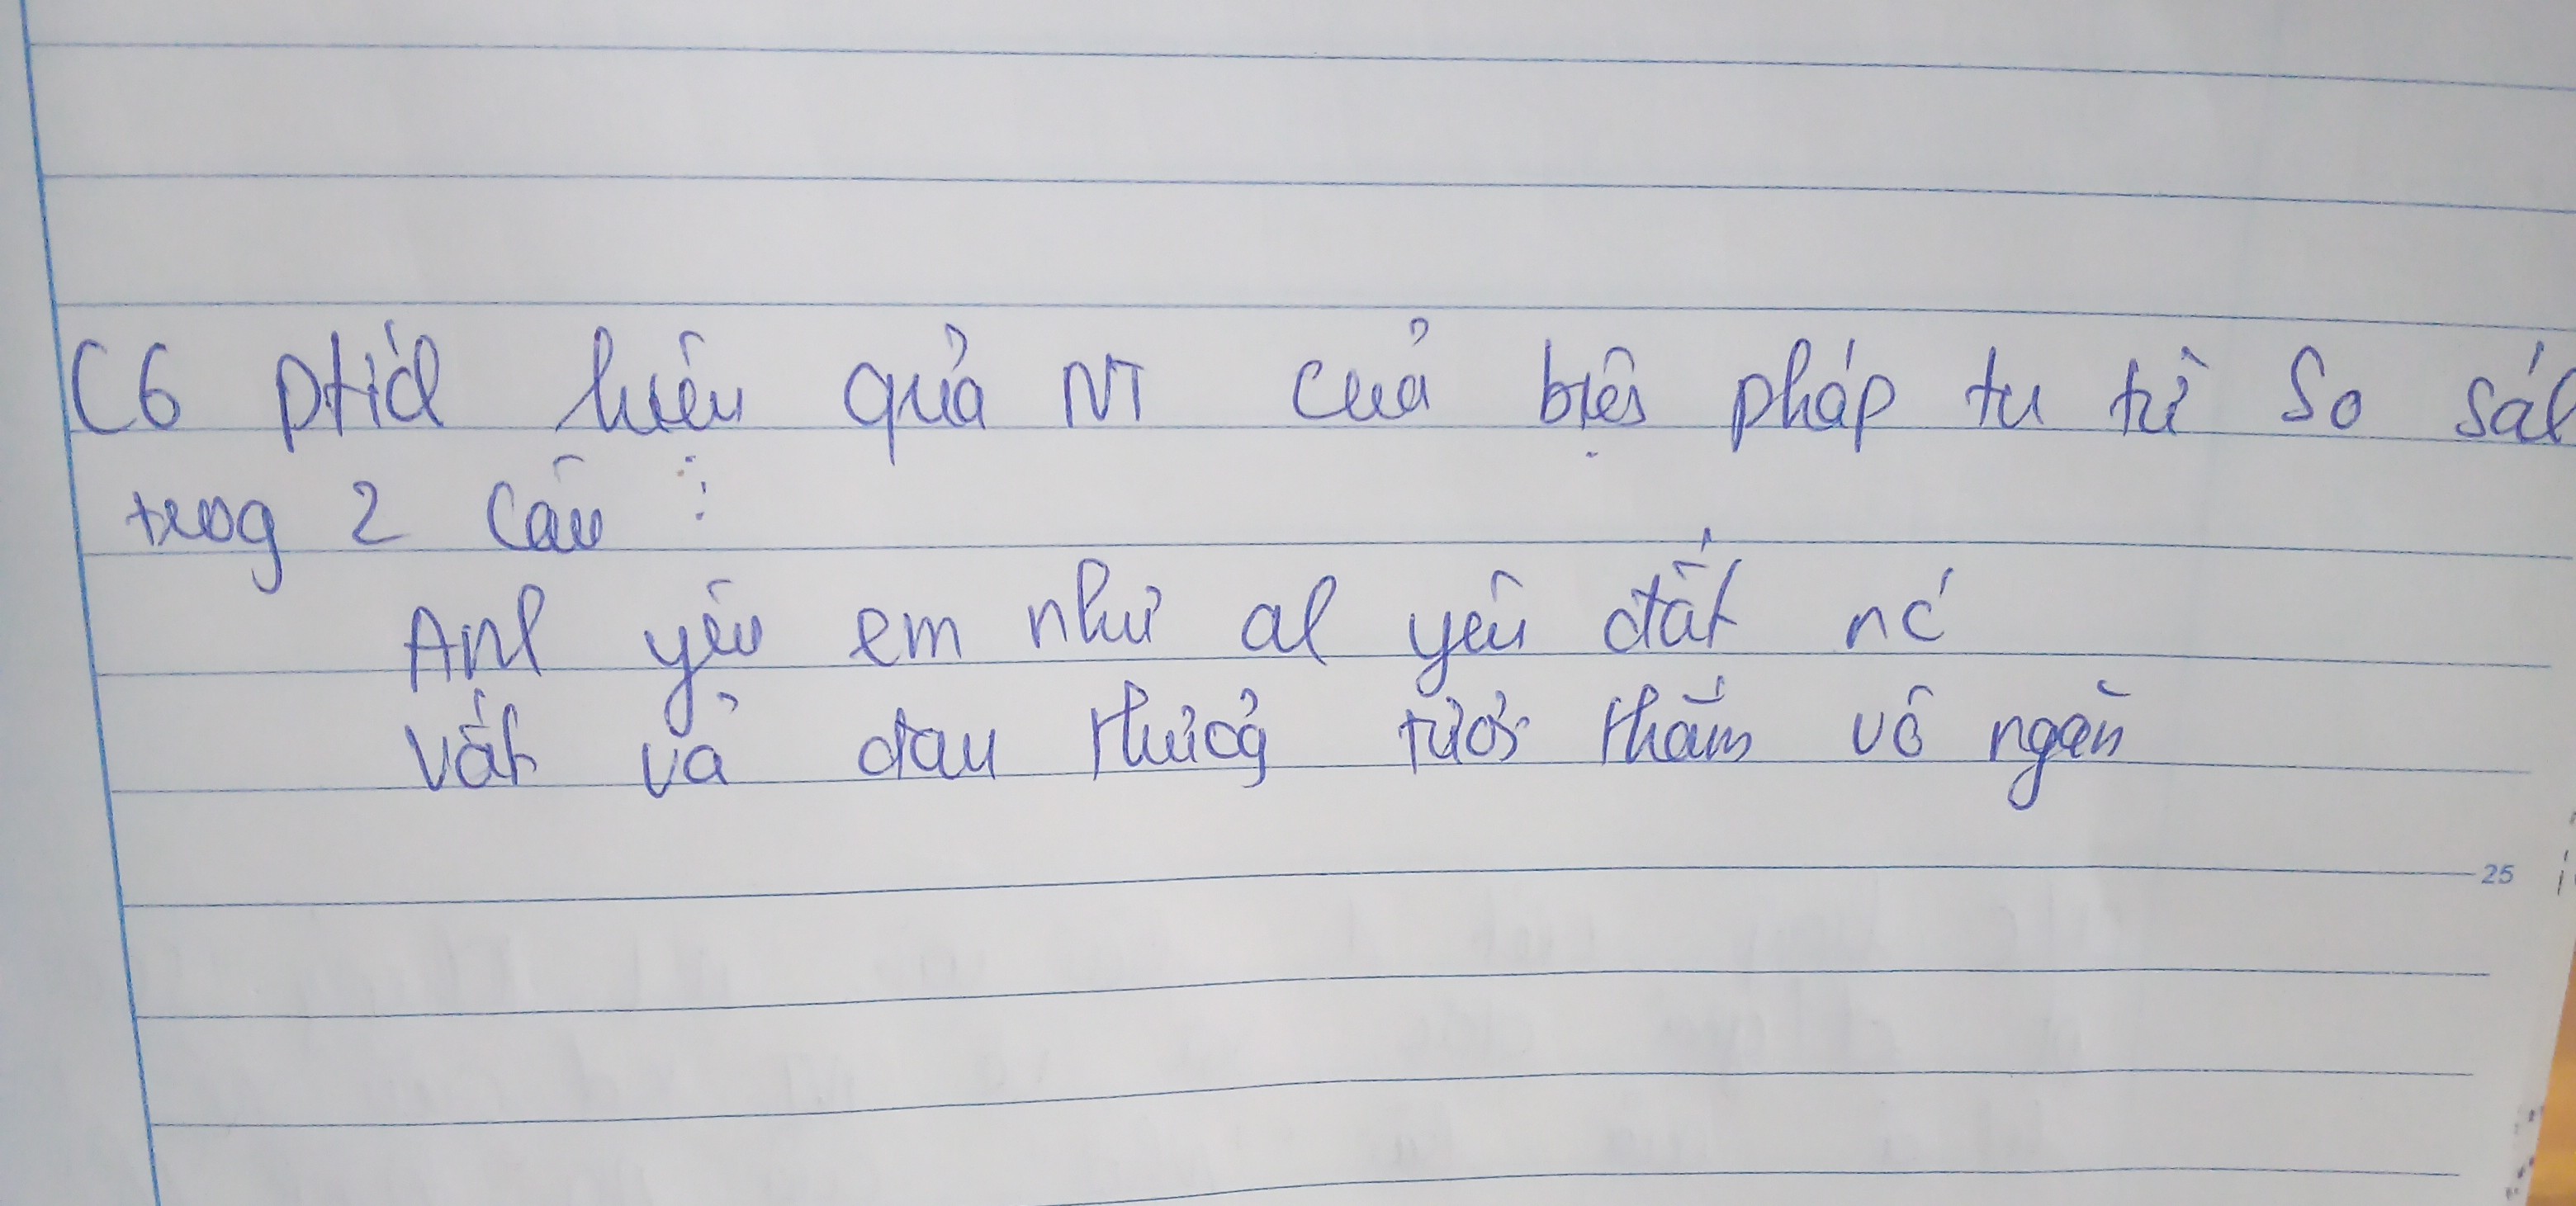 C6 ptíck hiệu quả NT của biện pháp tu từ so sák
trog 2 câu :
Ank yêu em như ak yêu đất nc'
Vất vả đau thươg tươi thắm vô ngần
25